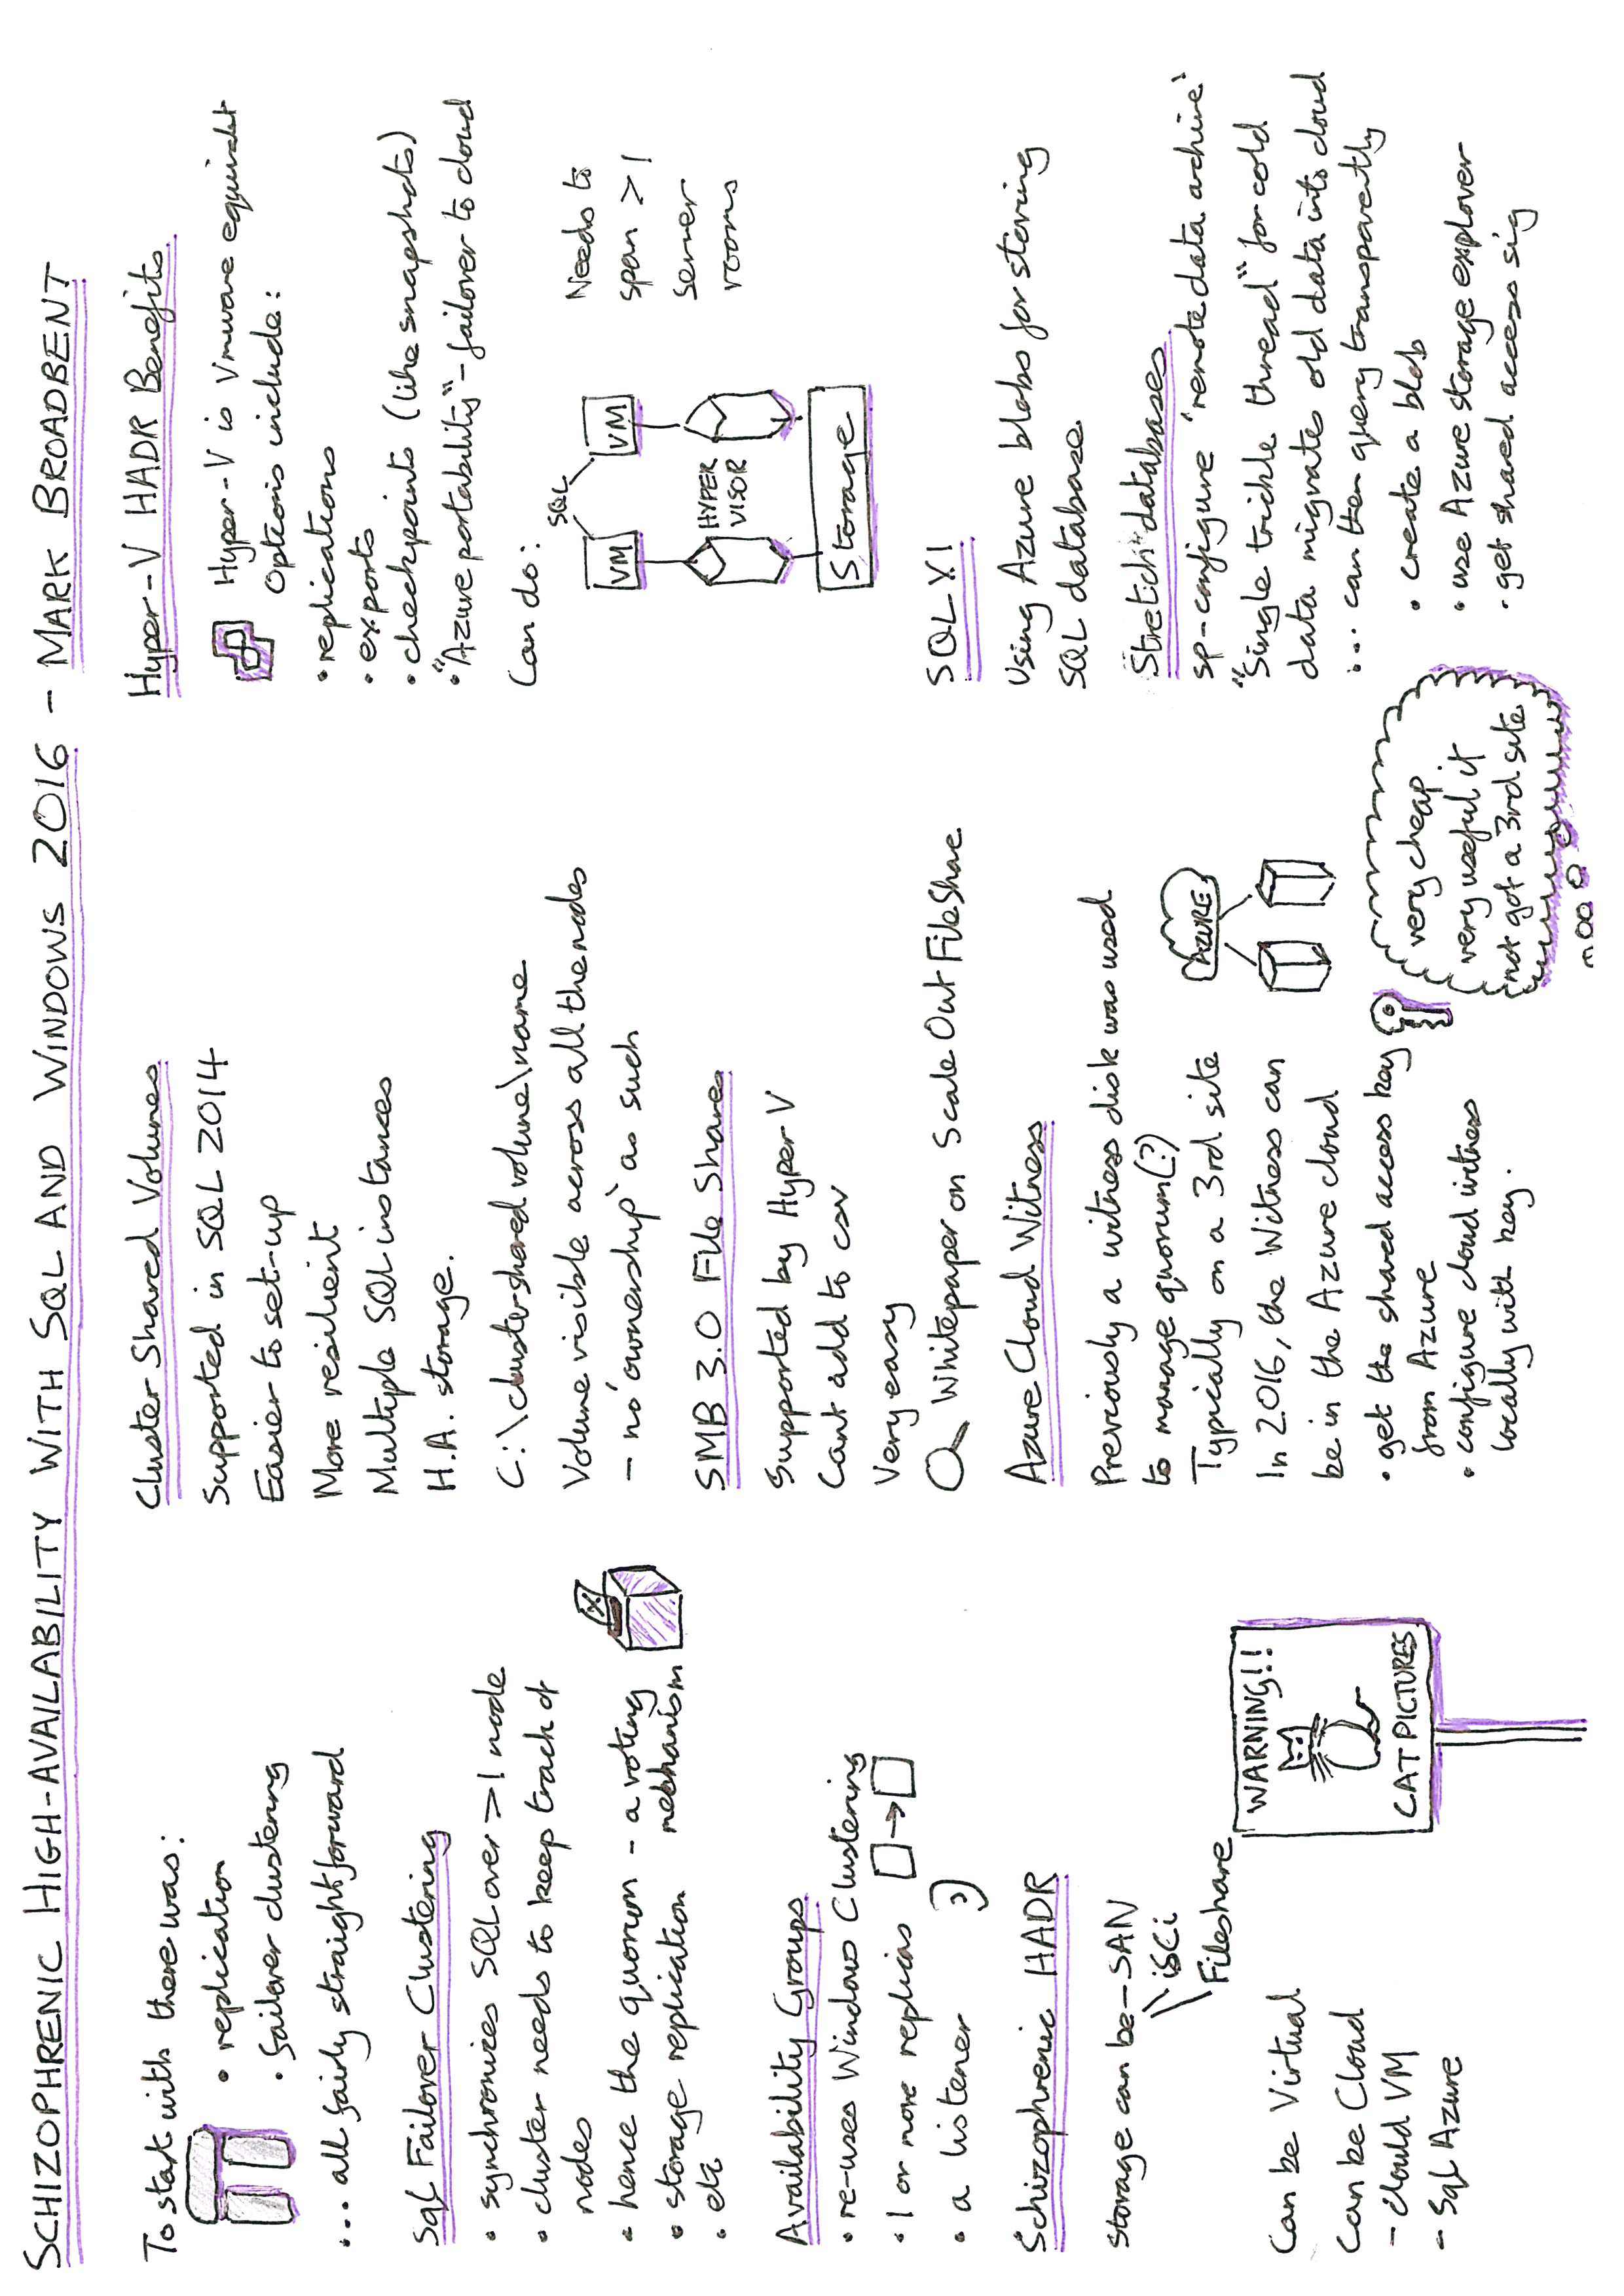 SCHIZOPHRENIC HIGH-AVAILABILITY WITH SQL AND WINDOWS 2016 - MARK BROADBENT
To start with there was:
• replication
• failover clustering
... all fairly straightforward
Sql Failover Clustering
• synchronizes SQL over >1 node
• cluster needs to keep track of
nodes
• hence the quorum - a voting
mechanism
• storage replication
• etc
Availability Groups
• re-uses Windows Clustering
• 1 or more replicas
• a listener
Schizophrenic HADR
Storage can be - SAN
iSCi
Fileshare
Can be Virtual
Can be Cloud
- cloud VM
- Sql Azure
WARNING!!
CAT PICTURES
Cluster Shared Volumes
Supported in SQL 2014
Easier to set-up
More resilient
Multiple SQL instances
H.A. storage.
C:\clustershared volume\name
Volume visible across all the nodes
- no 'ownership' as such
SMB 3.0 File Shares
Supported by Hyper-V
Cant add to csv
Very easy
Whitepaper on Scale Out FileShare
Azure Cloud Witness
Previously a witness disk was used
to manage quorum(?)
Typically on a 3rd site
In 2016, the Witness can
be in the Azure cloud
• get the shared access key
from Azure
• configure cloud witness
locally with key.
AZURE
very cheap
very useful if
not got a 3rd site
Hyper-V HADR Benefits
Hyper-V is Vmware equivalent
Options include:
• replications
• exports
• checkpoints (like snapshots)
• "Azure portability" - failover to cloud
Can do:
SQL
VM
VM
HYPER
VISOR
Storage
Needs to
span >1
server
rooms
SQL XI
Using Azure blobs for storing
SQL database
"Stretch" databases
sp-configure 'remote data archive'
"Single trickle thread" for cold
data migrates old data into cloud
... can then query transparently
• create a blob
• use Azure storage explorer
• get shared access sig